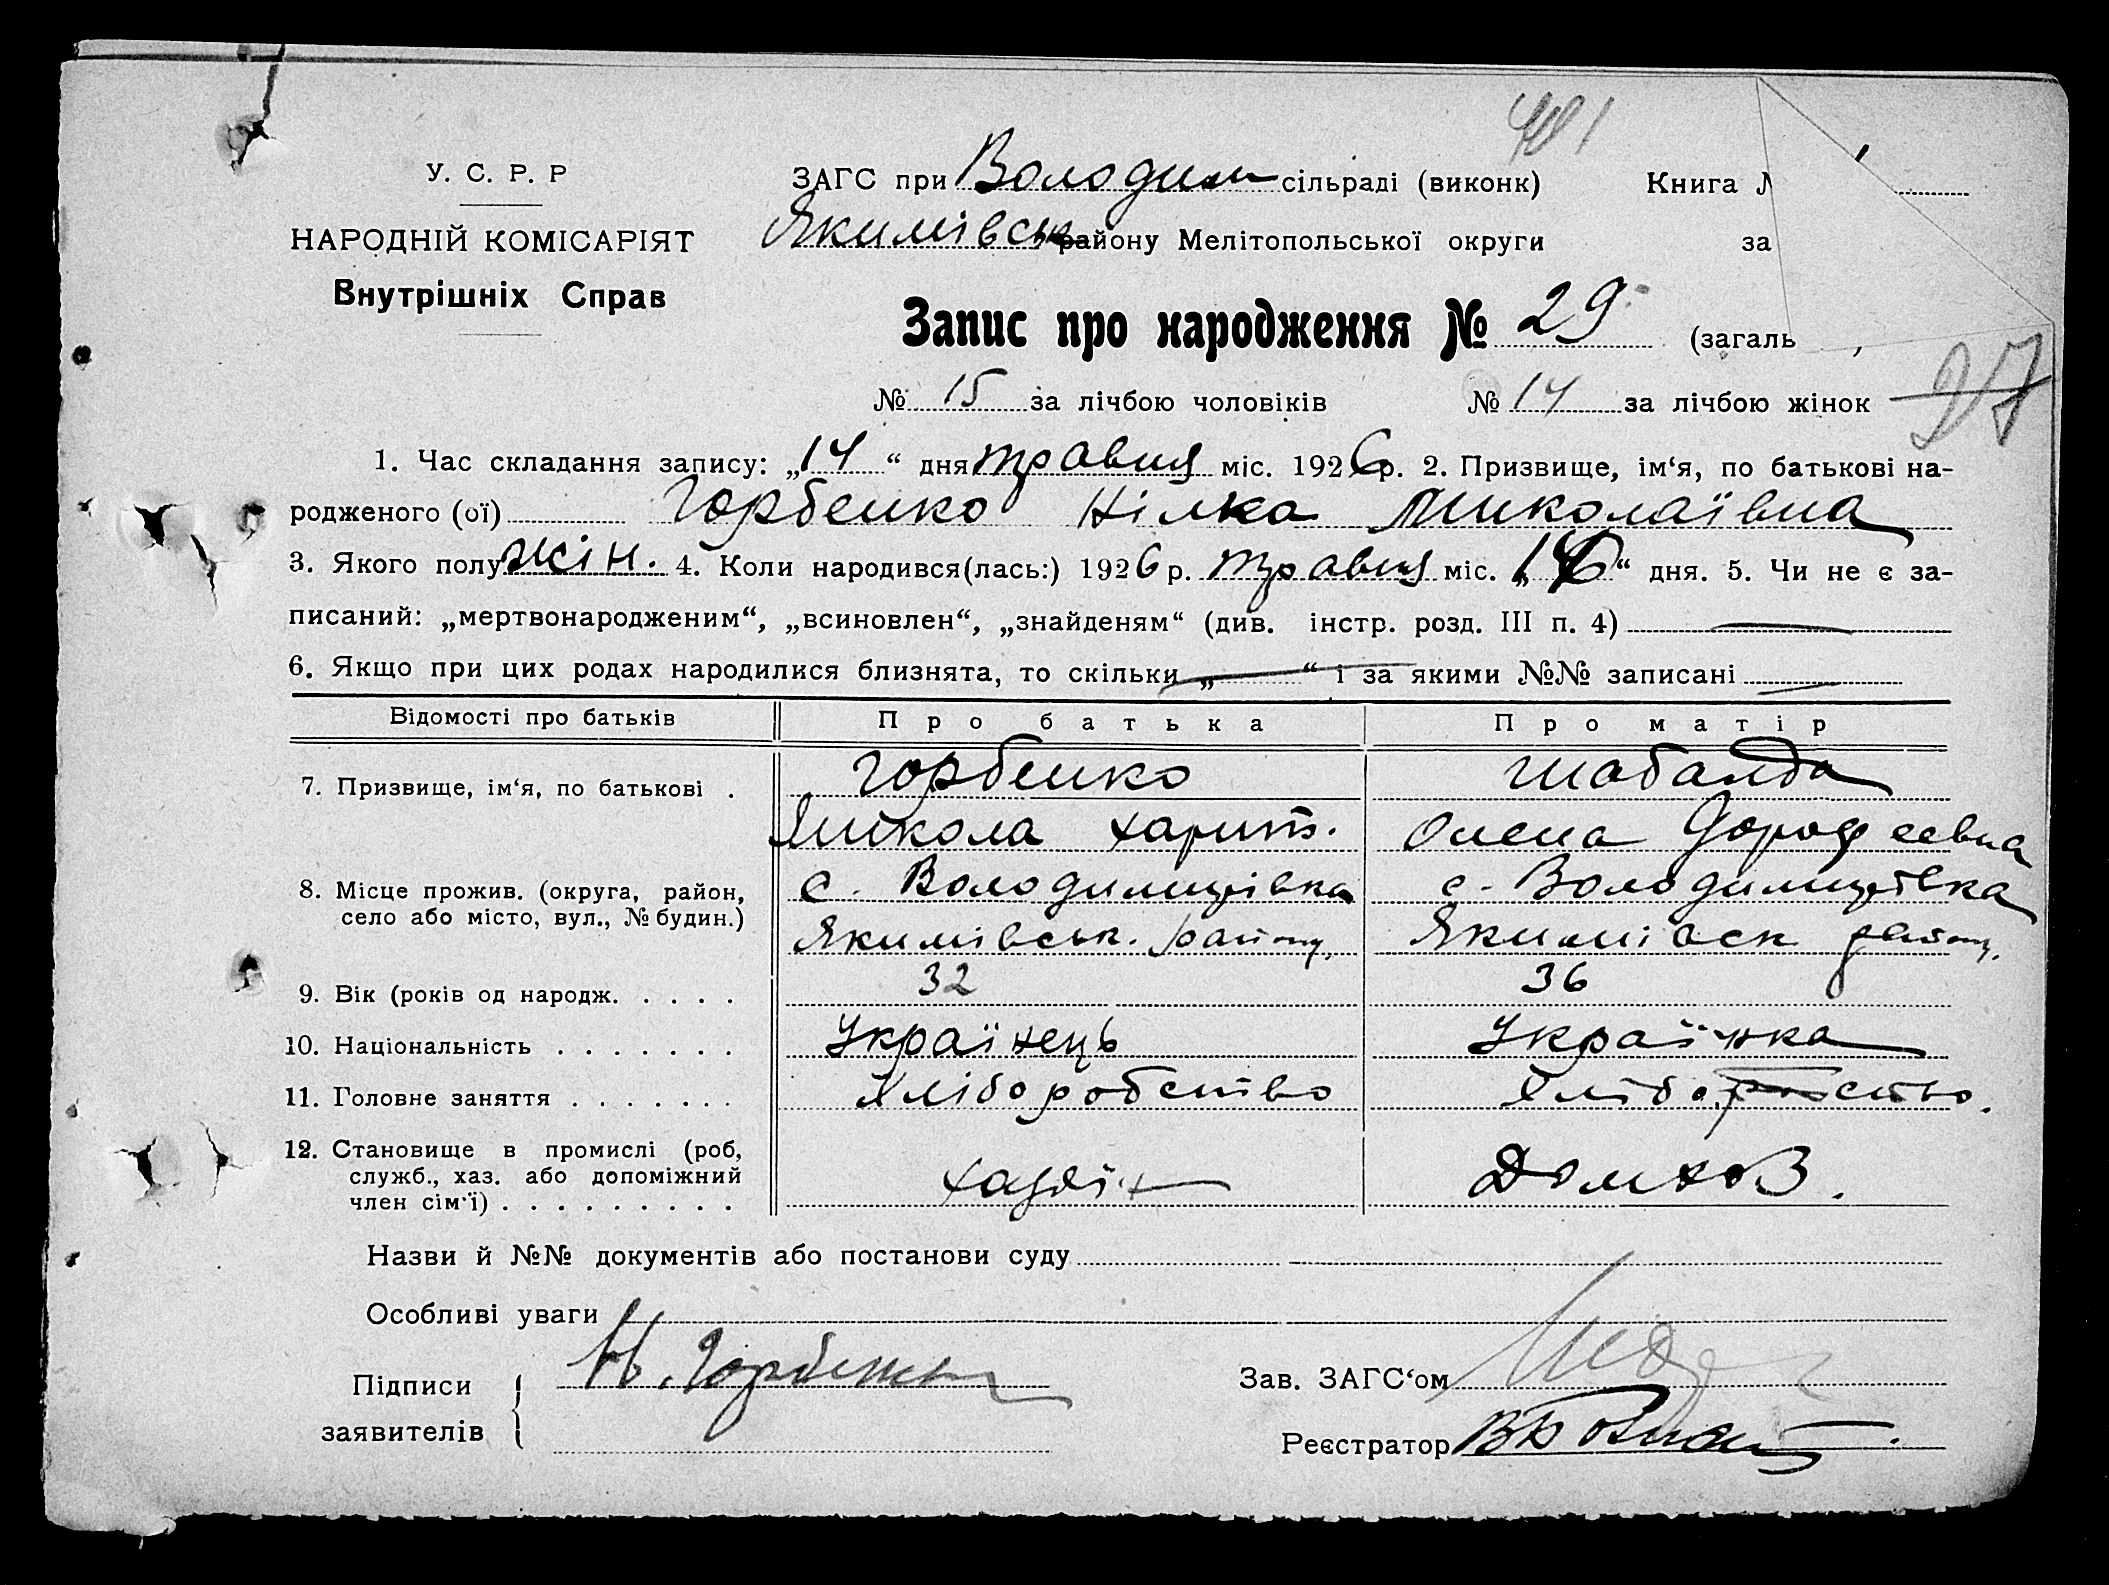 401
У. С. Р. Р
НАРОДНІЙ КОМІСАРІЯТ
Внутрішніх Справ
ЗАГС при Володим сільраді (виконк) Книга
Якимівськ району Мелітопольської округи за
Запис про народження № 29 (загаль
27
№ 15 за лічбою чоловіків № 14 за лічбою жінок
1. Час складання запису: „14“ дня травня міс. 1926 р. 2. Призвище, ім‘я, по батькові на-
родженого (ої) Горбенко Нілка Миколаївна
3. Якого полу жін. 4. Коли народився(лась:) 1926 р. травня міс. „ “ дня. 5. Чи не є за-
писаний: „мертвонародженим“, „всиновлен“, „знайденям“ (див. інстр. розд. III п. 4) —
6. Якщо при цих родах народилися близнята, то скільки „—“ і за якими №№ записані —
Відомості про батьків Про батька Про матір
7. Призвище, ім‘я, по батькові . Горбенко Шабалда
Микола Харит. Олена Дорофеевна
8. Місце прожив. (округа, район, с. Володимирівка с. Володимирівка
село або місто, вул., № будин.) Якимівськ. району, Якимівск району.
9. Вік (років од народж. . . . . 32 36
10. Національність . . . . . . . Українець Українка
11. Головне заняття . . . . . . . Хліборобство Хліборобство.
12. Становище в промислі (роб, хазяїн Домхоз.
служб., хаз. або допоміжний
член сім‘ї) . . . . . . . . .
Назви й №№ документів або постанови суду
Особливі уваги
Підписи Н. Горбенко Зав. ЗАГС‘ом
заявителів Реєстратор